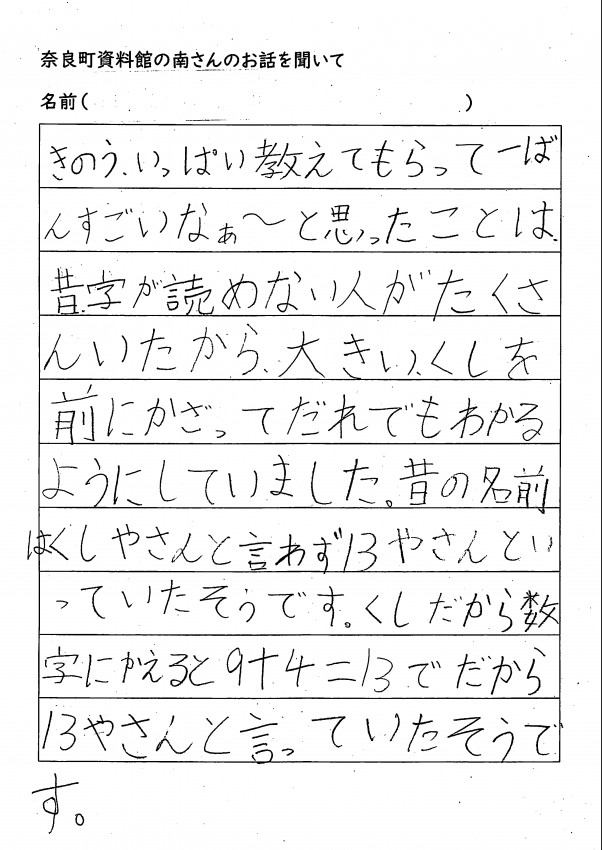 奈良町資料館の南さんのお話を聞いて
名前( )
きのう、いっぱい教えてもらって一ば
んすごいなぁ〜と思ったことは、
昔、字が読めない人がたくさ
んいたから、大きい、くしを
前にかざってだれでもわかる
ようにしていました。昔の名前
はくしやさんと言わず13やさんとい
っていたそうです。くしだから数
字にかえると9+4=13でだから
13やさんと言っていたそうで
す。